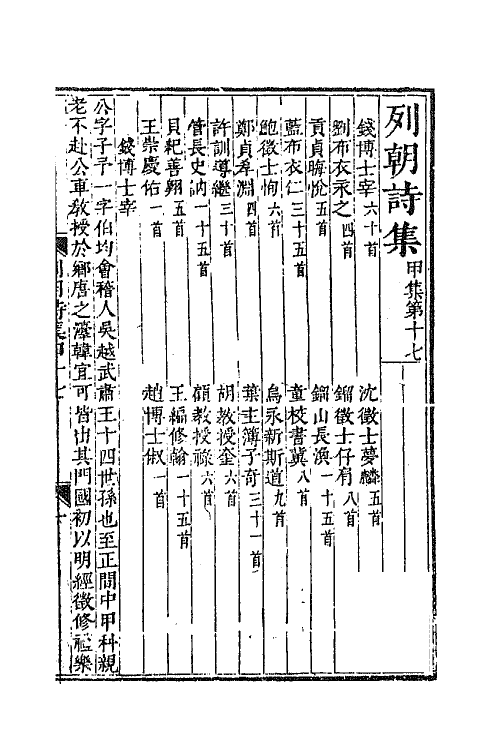 列朝詩集 甲集第十七
錢博士宰六十首 沈徵士夢麟五首
劉布衣永之四首 鎦徵士仔肩八首
貢貞晦悅五首 鎦山長渙一十五首
藍布衣仁三十五首 童校書冀八首
鮑徵士恂六首 烏永新斯道九首
鄭貞孝淵四首 葉主簿子奇三十一首
許訓導繼三十首 胡教授奎六首
管長史訥一十五首 顧教授祿六首
貝紀善翱五首 王編修翰一十五首
王崇慶佑一首 趙博士俶一首
錢博士宰
公字子予一字伯均會稽人吳越武肅王十四世孫也至正間中甲科親
老不赴公車敎授於鄉唐之淳韓宜可皆出其門國初以明經徵修禮樂
列朝詩集甲十七 一